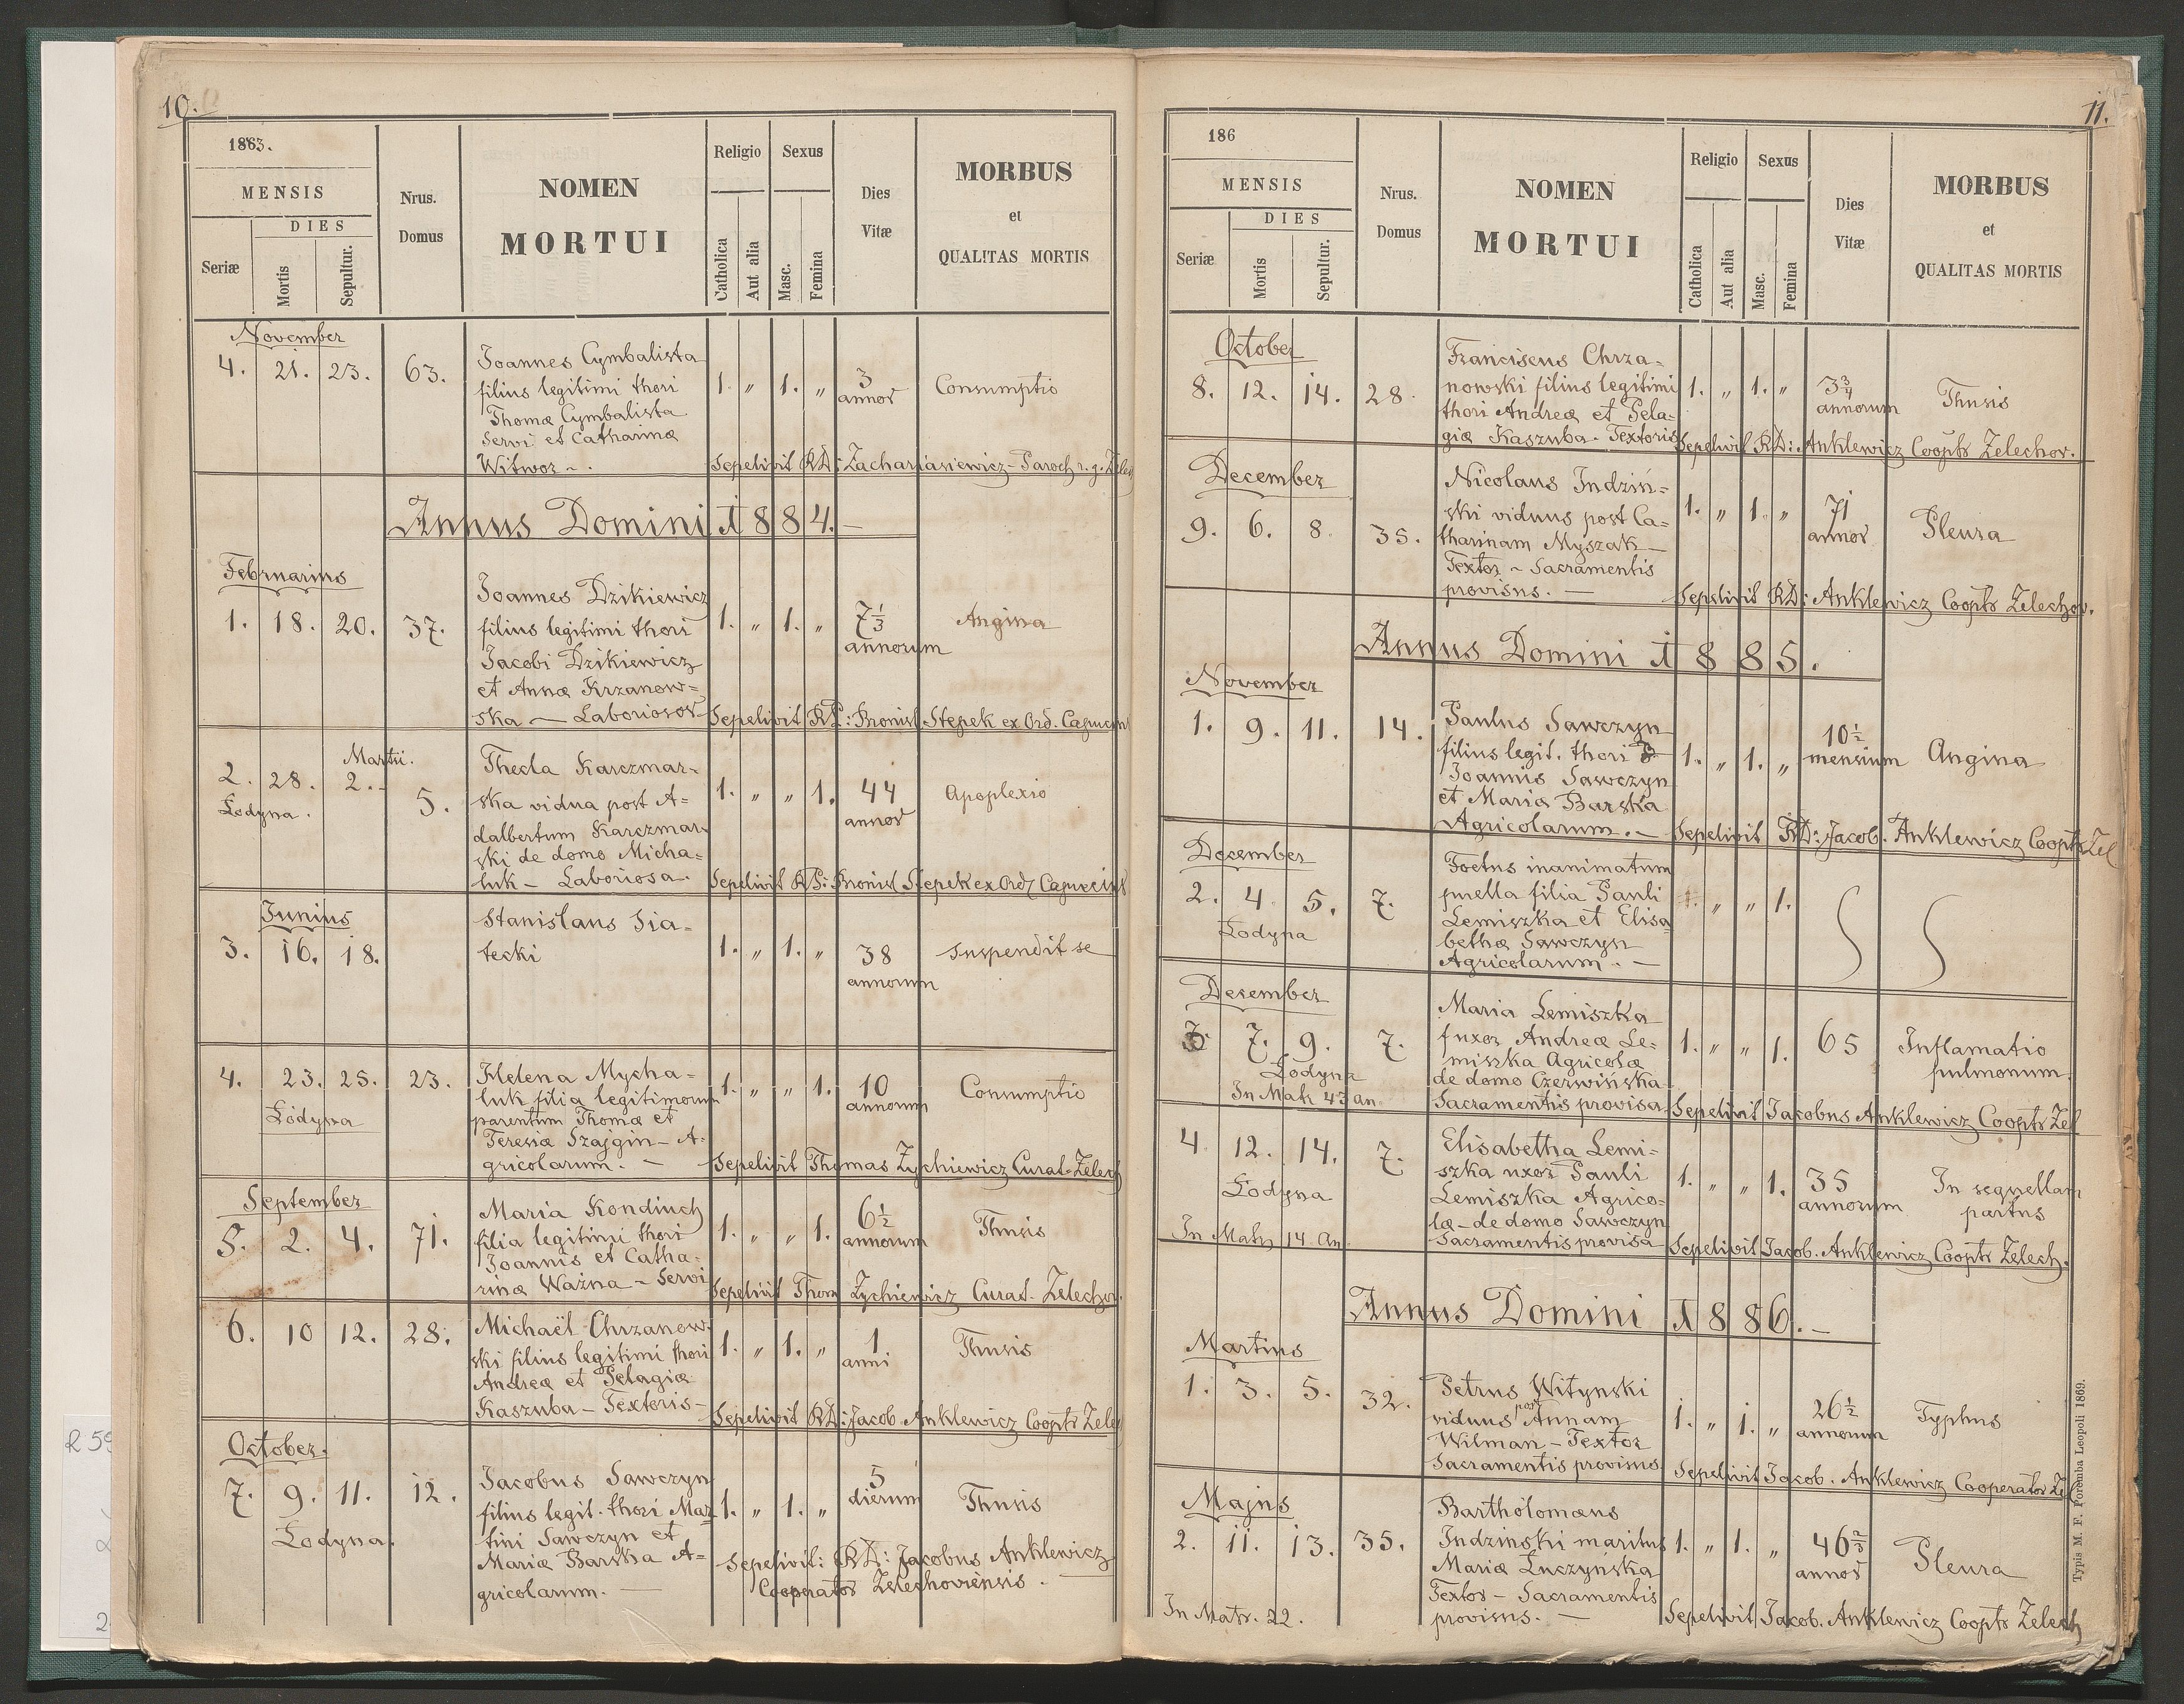 10.
1863.
MENSIS
DIES
Seriæ
Mortis
Sepultur.
Nrus.
Domus
NOMEN
MORTUI
Religio
Sexus
Catholica
Aut alia
Masc.
Femina
Dies
Vitæ
MORBUS
et
QUALITAS MORTIS
November
4. 21. 23. 63. Joannes Cymbalista 1. „ 1. „ 3 Consumptio
filius legitimi thori annor
Thomæ Cymbalista
Servi et Catharinæ
Witwor ~. Sepelivit RD: Zachariasiewicz - Paroch r. g. Zelec
Annus Domini 1884. —
Februarius
Joannes Dzikiewicz
1. 18. 20. 37. filius legitimi thori 1. „ 1. „ 7⅓ Angina
Jacobi Dzikiewicz annorum
et Annæ Krzanow=
ska — Laboriosor Sepelivit RP: Bronisl Stepek ex Ord. Capucin
Martii.
2. 28. 2. - Thecla Karczmar-
Łodyna. 5. ska vidua post A= 1. „ „ 1. 44 Apoplexio
dalbertum Karczmar- annor
ski de domo Micha=
luk - Laboriosa. Sepelivit RP: Bronisl Stepek ex Ord Capucin
Junius
3. 16. 18. Stanislaus Sia= 1. „ 1. „ 38 Suspendit se
tecki annorum
4. 23. 25. 23. Helena Mycha= 1. „ „ 1. 10 Consumptio
luk filia legitimorum annorum
Łodyna parentum Thomæ et
Teresiæ Szajgin - A-
gricolarum. — Sepelivit Thomas Zychiewicz Curat. Zelech
September
5. 2. 4. 71. Maria Kondiuch 1. „ „ 1. 6½ Thusis
filia legitimi thori annorum
Joannis et Catha-
rinæ Ważna - Servi Sepelivit Thom Zychiewicz Curat. Zelechov.
6. 10 12. 28. Michaël Chrzanow- 1. „ 1. „ 1 Thusis
ski filius legitimi thori anni
Andreæ et Pelagiæ
Kaszuba - Textoris - Sepelivit RD: Jacob. Anklewicz Coopts Zelec
October.
7. 9. 11. 12. Jacobus Sawczyn 1. „ 1. „ 5 Thusis
filius legit. thori Mar dierum
Łodyna. tini Sawczyn et
Mariæ Barska A= Sepelivit: RD: Jacobus Anklewicz
gricolarum. — Cooperator Zelechoviensis.
11.
186
MENSIS
DIES
Seriæ
Mortis
Sepultur.
Nrus.
Domus
NOMEN
MORTUI
Religio
Sexus
Catholica
Aut alia
Masc.
Femina
Dies
Vitæ
MORBUS
et
QUALITAS MORTIS
October
Franciscus Chrza=
8. 12. 14. 28. nowski filius legitimi 1. „ 1. „ 3¾ Thusis
thori Andreæ et Pela= annorum
giæ Kaszuba. Textoris Sepelivit RD: Anklewicz Coopts Zelechov.
December
Nicolaus Indziń=
9. 6. 8. 35. ski viduus post Ca= 1. „ 1. „ 71 Pleura
tharinam Myszak — annor
Textor ~ Sacramentis
provisus. — Sepelivit RD: Anklewicz Coopts Zelechov.
Annus Domini 1885.
November
1. 9. 11. 14. Paulus Sawczyn 1. „ 1. „ 10½ Angina
filius legit. thori mensium
Joannis Sawczyn
et Maria Barska
Agricolarum. - Sepelivit RD: Jacob. Anklewicz Coopts Zel
December
Foetus inanimatum
2. 4. 5. 7. puella filia Pauli 1. „ „ 1.
Łodyna Lemiszka et Elisa
bethæ Sawczyn
Agricolarum. —
December
Maria Lemiszka
3. 7. 9. 7. uxor Andreæ Le= 1. „ „ 1. 65 Inflamatio
Łodyna miszka Agricolæ pulmonum
In Matr 43 an. de domo Czerwińska
Sacramentis provisa. Sepelivit Jacobus Anklewicz Coopts Zel
4. 12. 14. 7. Elisabetha Lemi=
szka uxor Pauli 1. „ „ 1. 35 In sequellam
Łodyna Lemiszka Agrico= annorum partus
læ - de domo Sawczyn
In Matr 14. An. Sacramentis provisa Sepelivit Jacob. Anklewicz Coopts Zelech.
Annus Domini 1886. -
Martius
1. 3. 5. 32. Petrus Witynski 1. „ 1. „ 26½ Typhus
viduus post Annam annorum
Wilman - Textor
Sacramentis provisus Sepelivit Jacob. Anklewicz Cooperator Zel
Majus
Bartholomæus
2. 11. 13. 35. Indzinski maritus 1. „ 1. „ 46⅔ Pleura
Mariæ Łuczyńska annor
Textor - Sacramentis
In Matr. 22. provisus. — Sepelivit Jacob. Anklewicz Coopts Zelech
Typis M. F. Poremba Leopoli 1869.
R 59